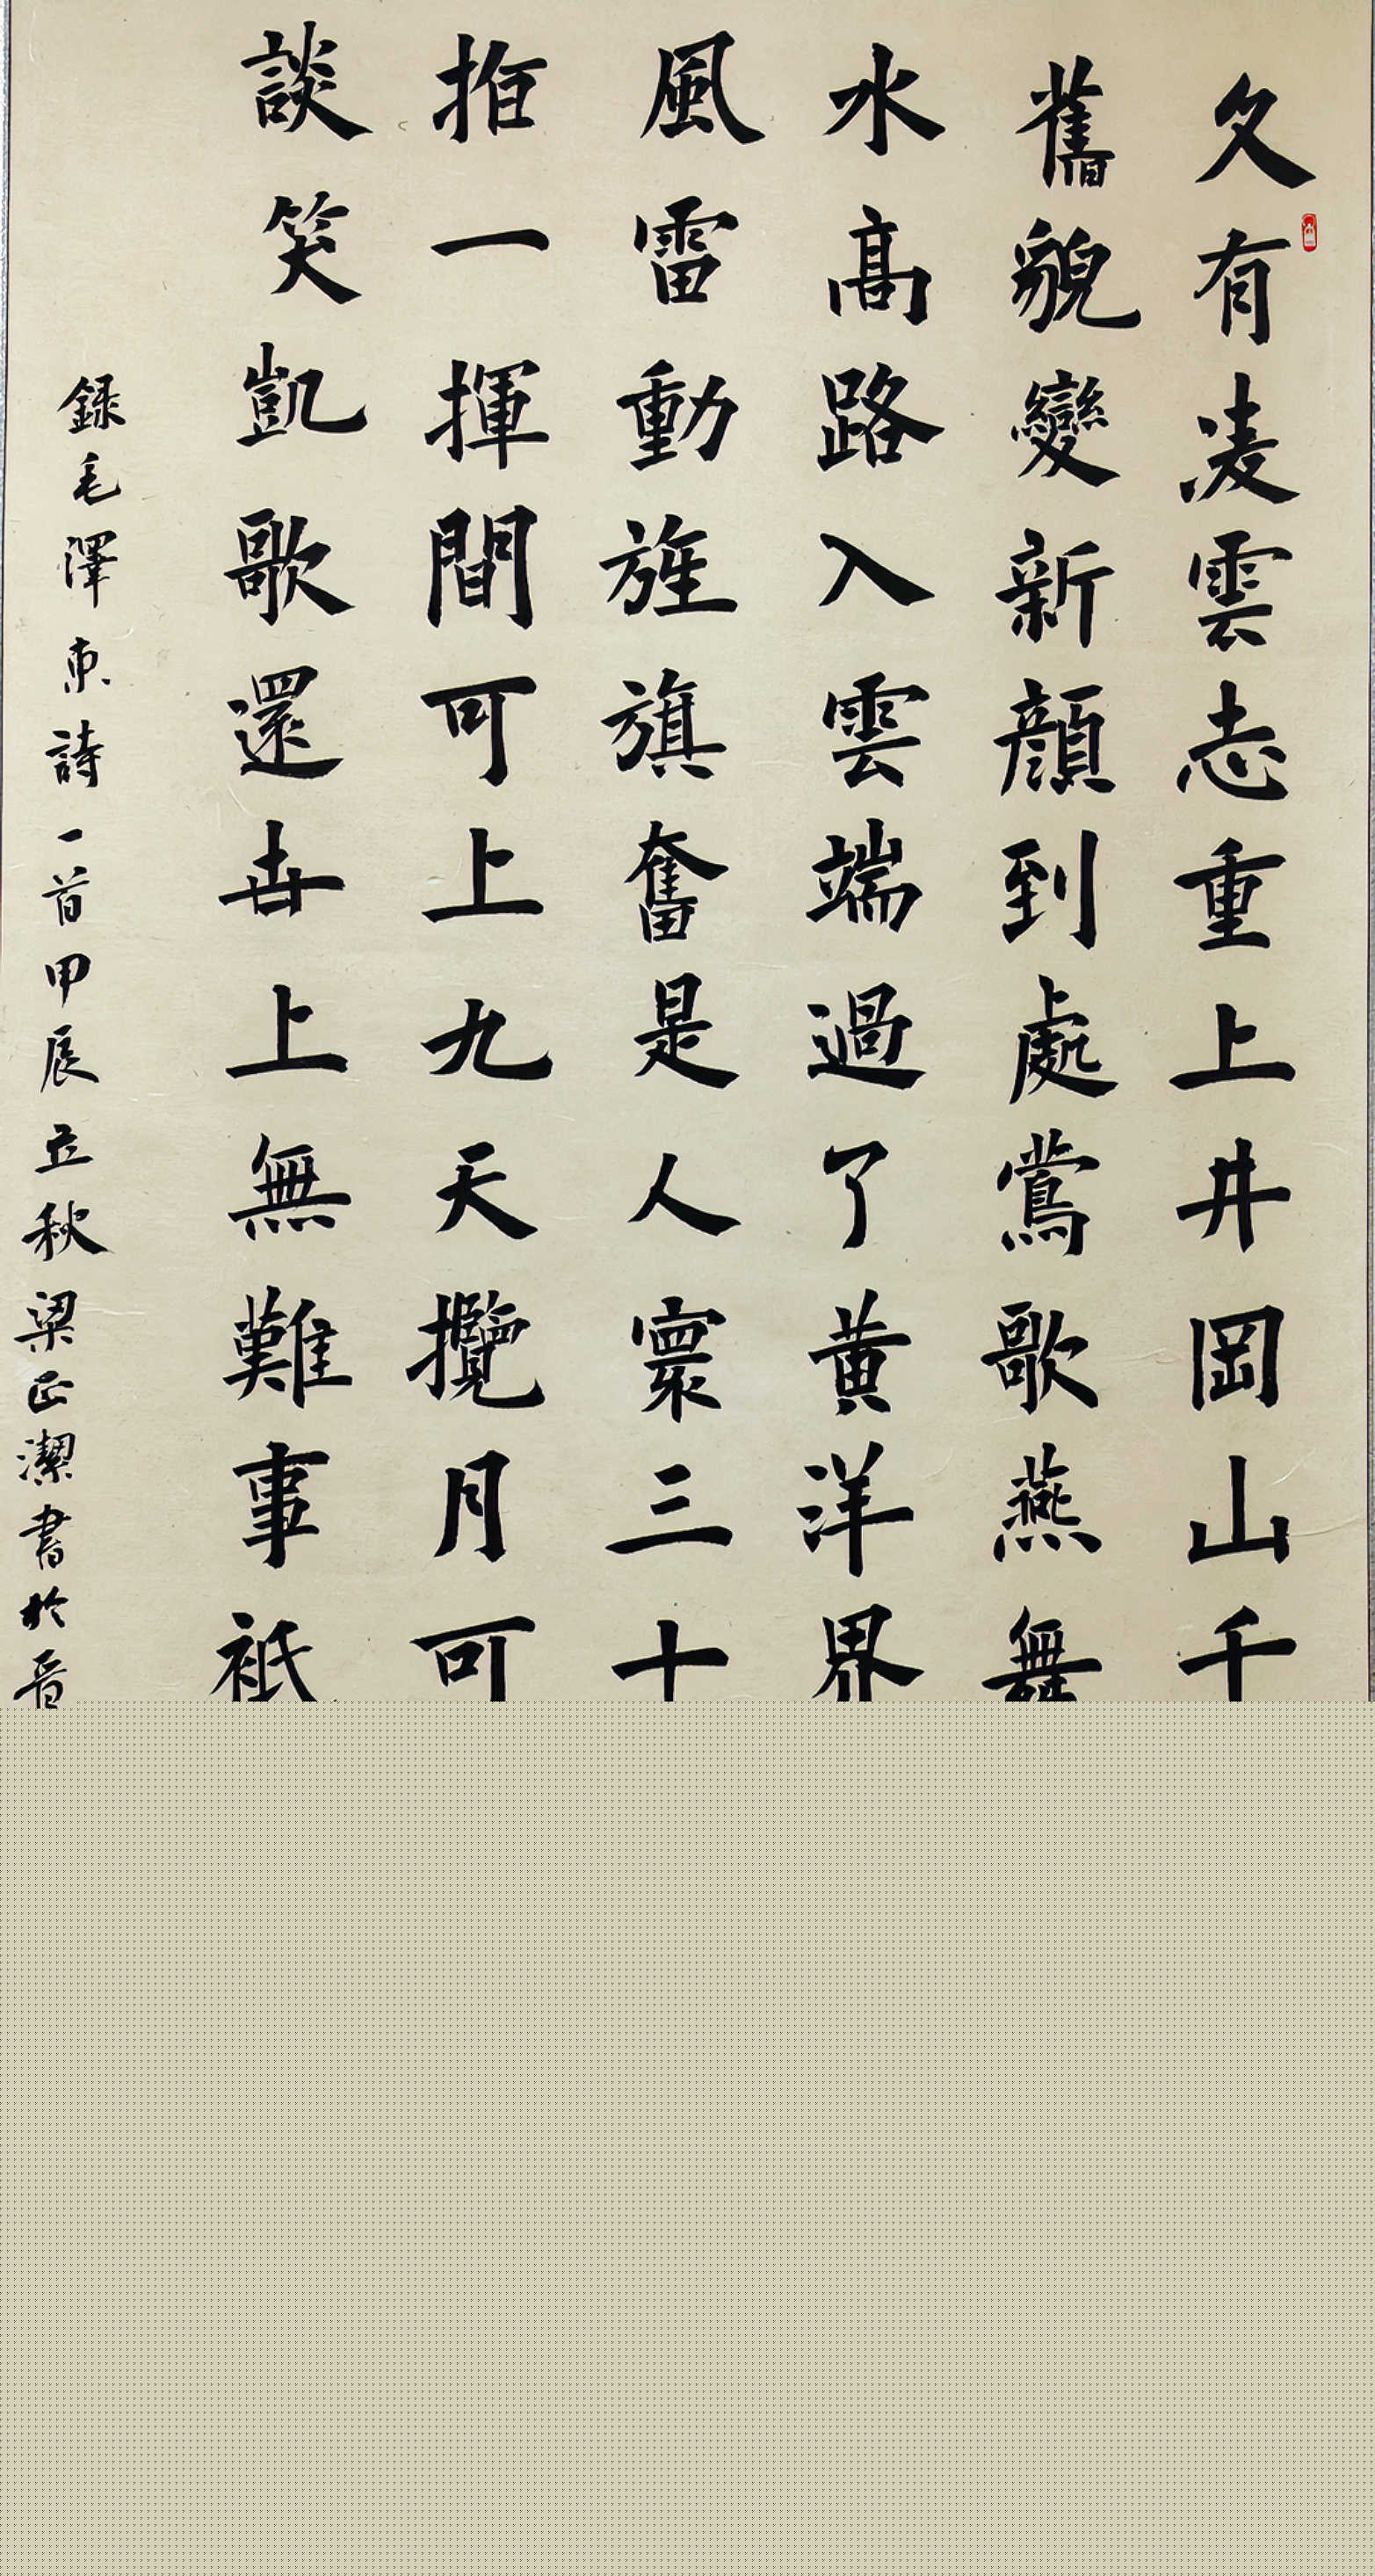 久有凌雲志重上井岡山千
舊貌變新顔到處鶯歌燕舞
水高路入雲端過了黄洋界
風雷動旌旗奮是人寰三十
指一揮間可上九天攬月可
談笑凱歌還世上無難事衹
録毛澤東詩一首甲辰立秋梁正潔書於晋